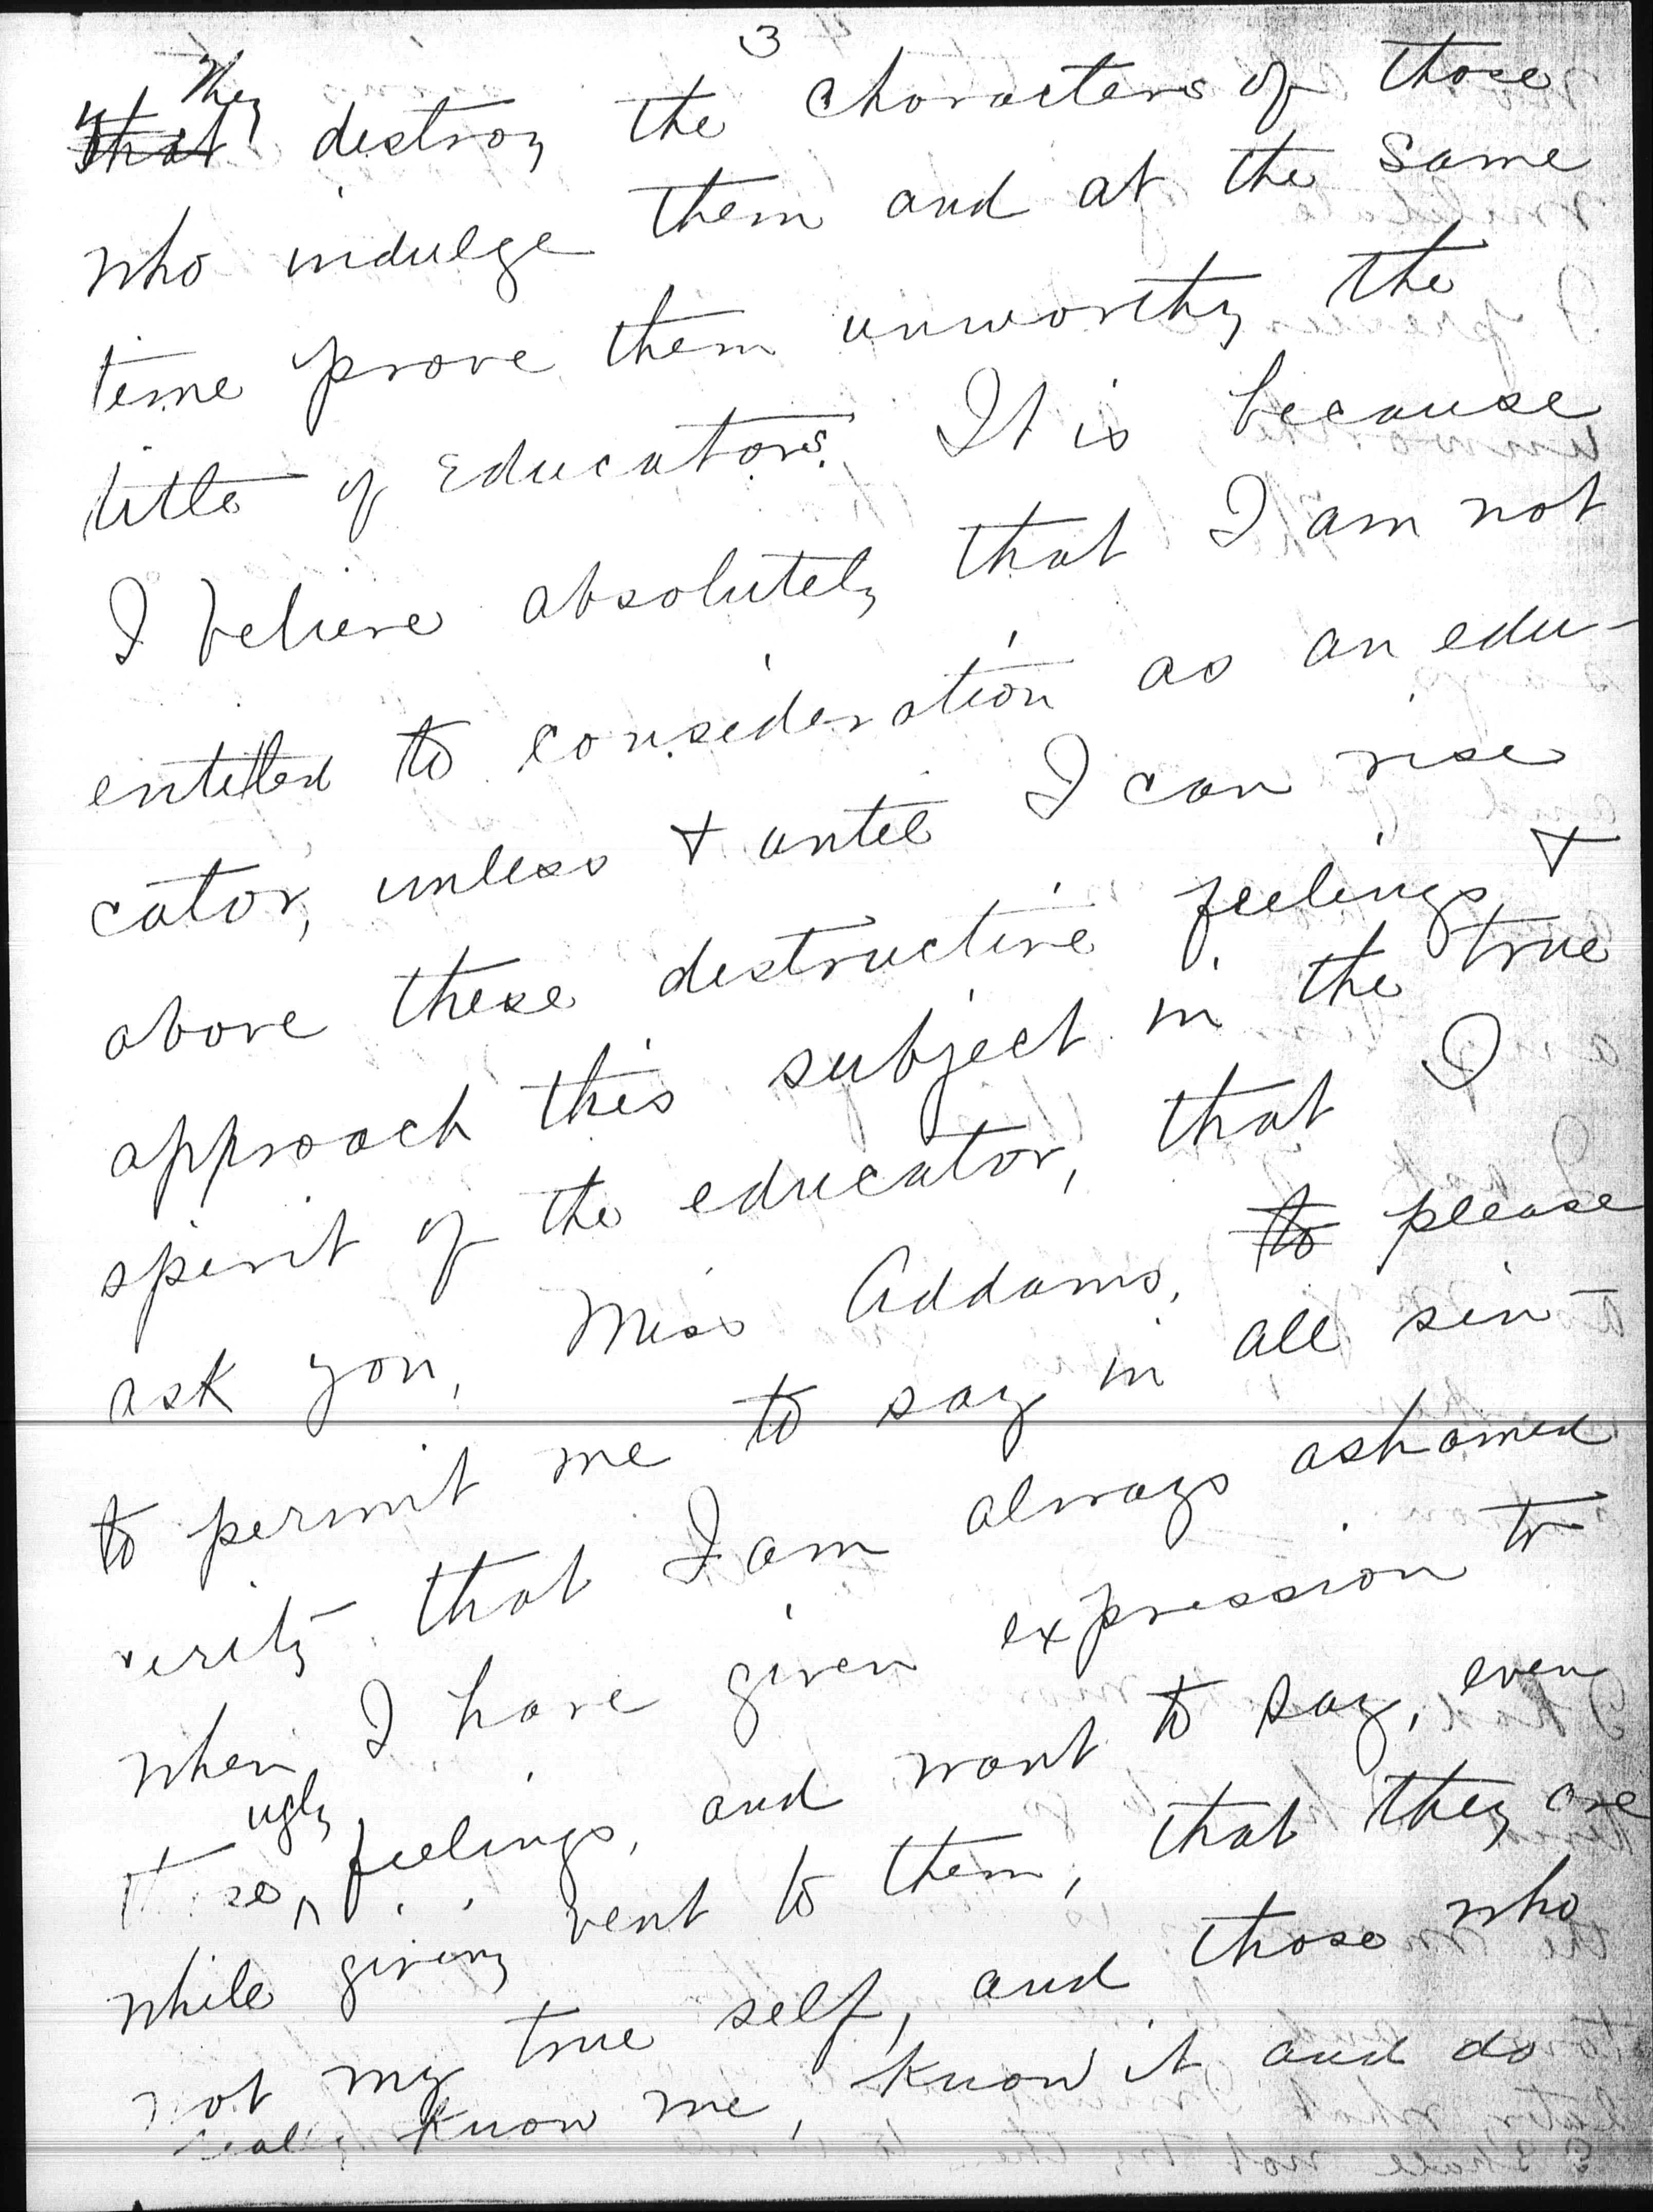 3
They
that destroy the characters of those
who indulge them and at the same
time prove them unworthy the
title of Educators. It is because
I believe absolutely that I am not
entitled to consideration as an edu-
cator, unless & until I can rise
above these destructive feelings &
approach this subject in the true
spirit of the educator, that I
ask you, Miss Addams, to please
to permit me to say in all sin-
cerity that I am always ashamed
when I have given expression to
ugly
feelings, and want to say, even
while giving vent to them, that they are
not my true self, and those who
really know me, know it and do